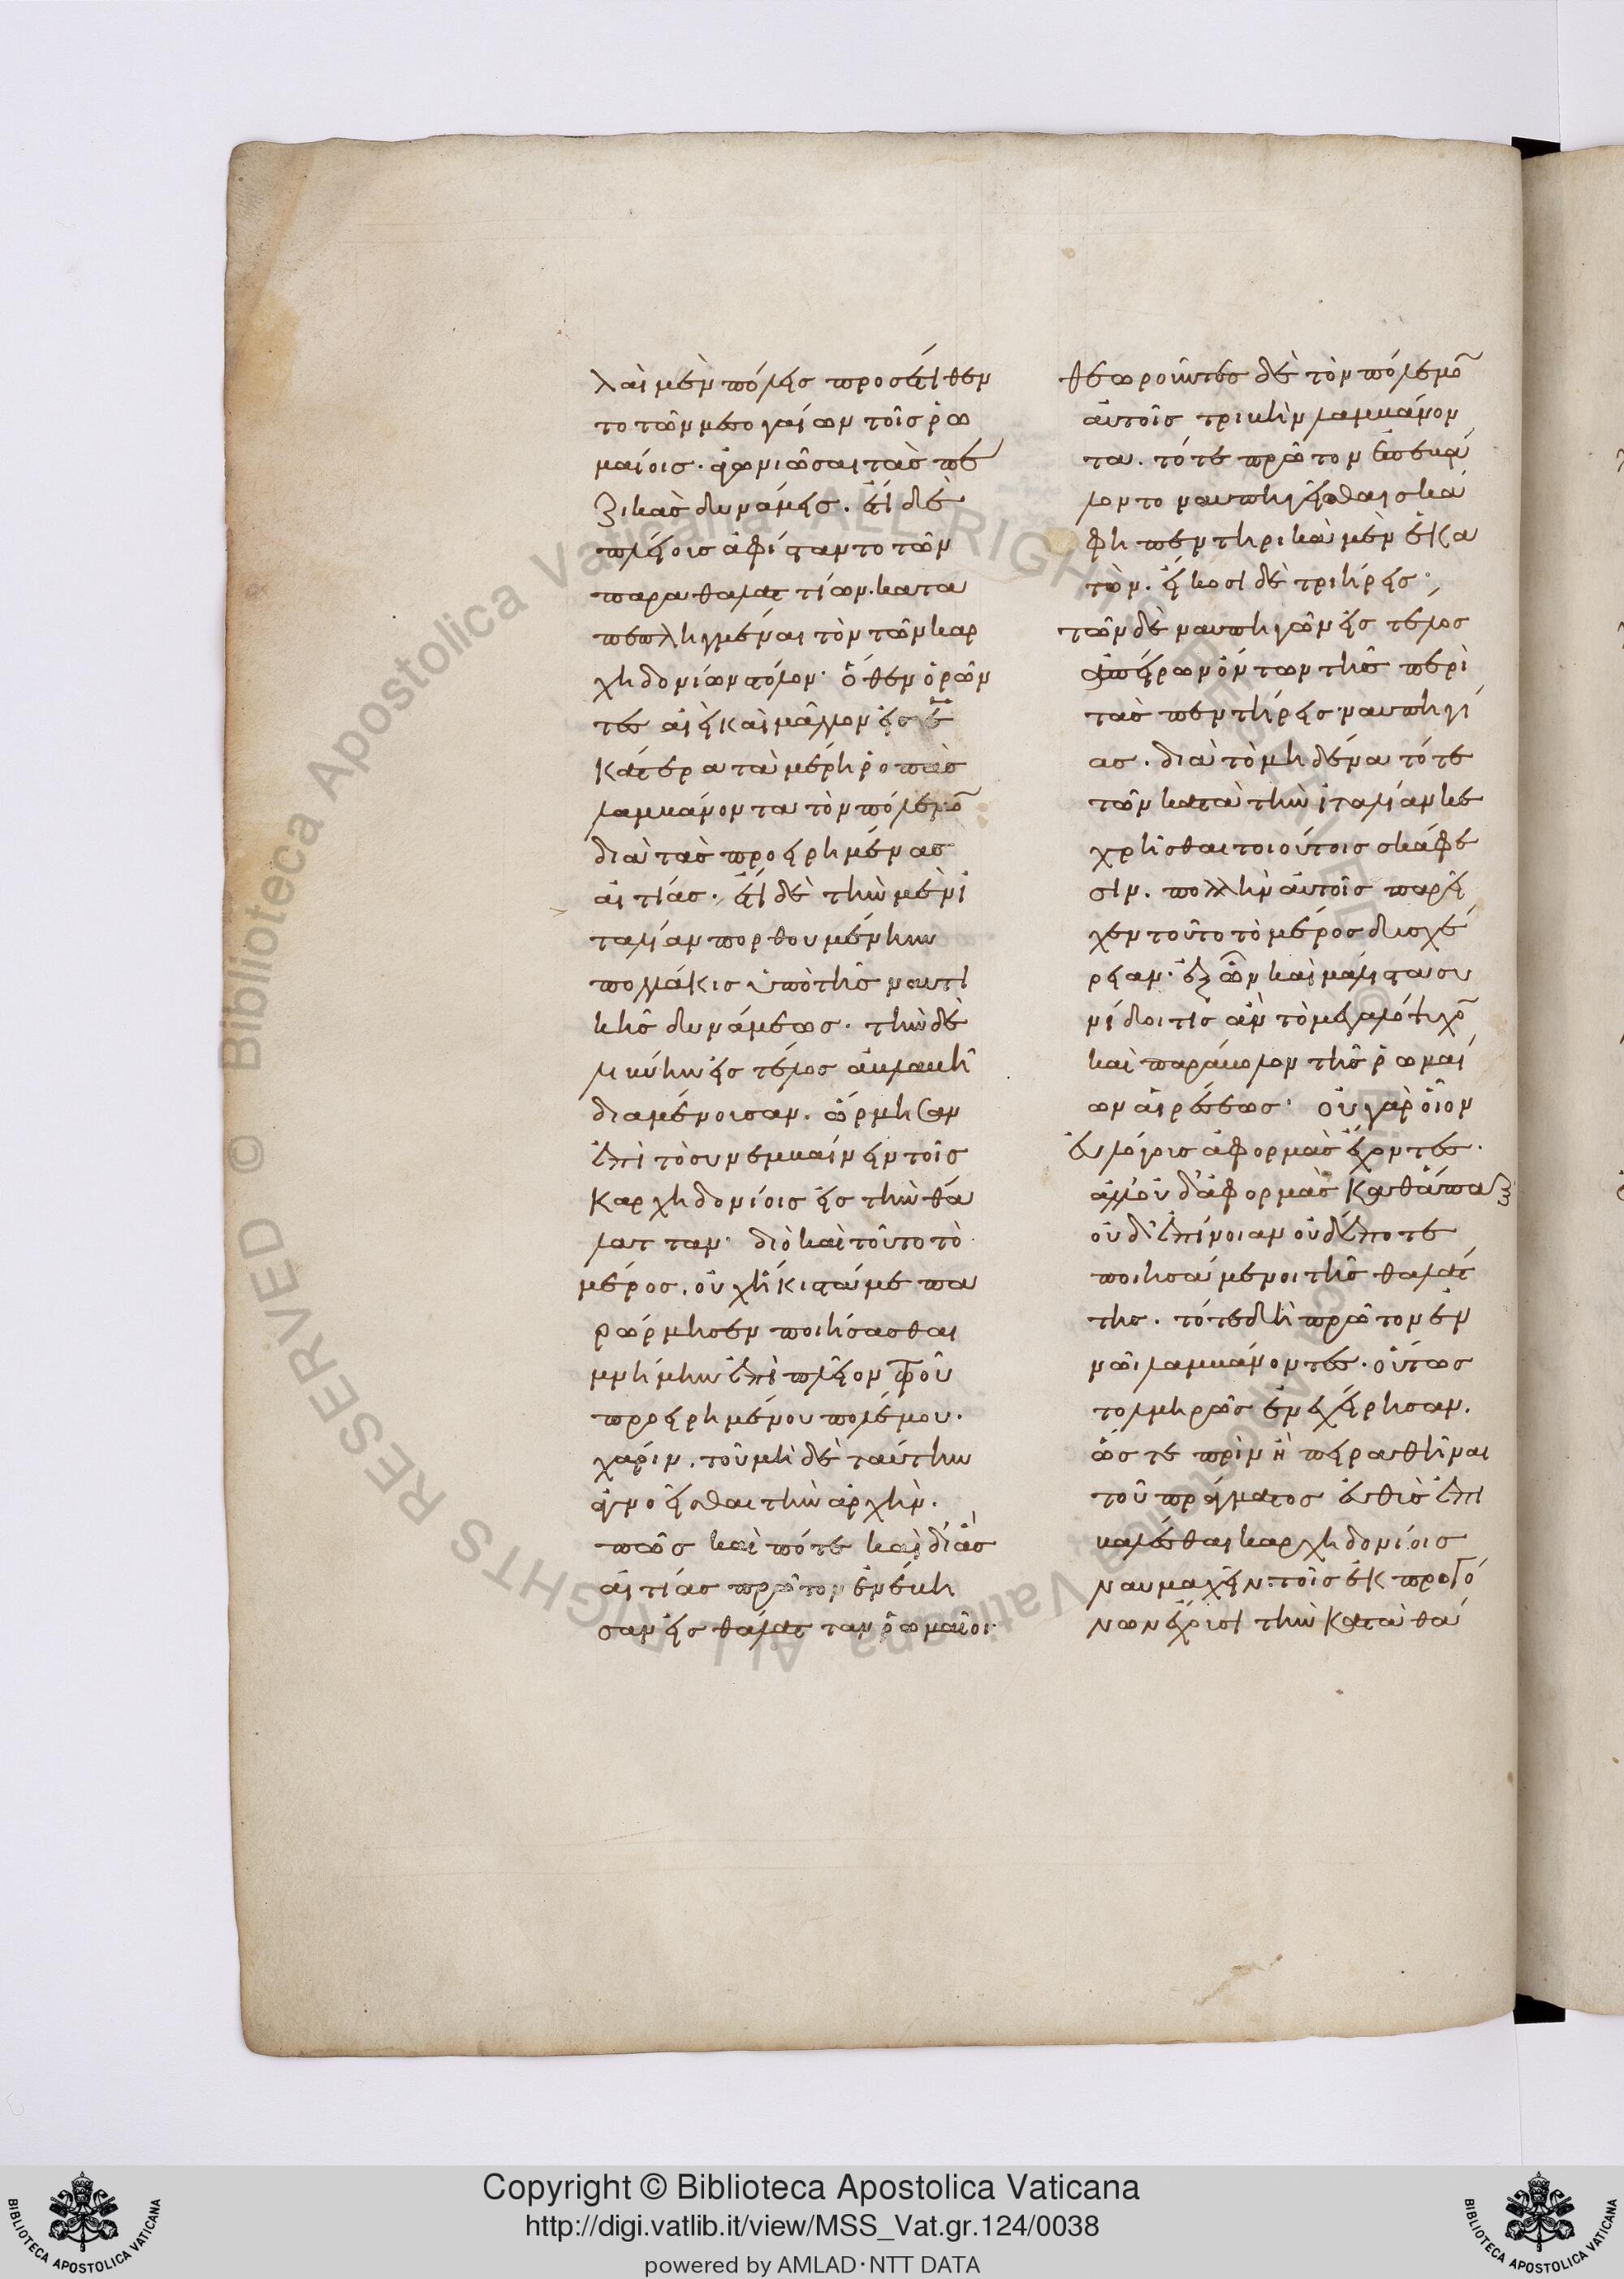 λαὶ μὲν πόλεις προσετίθεν
το τῶν μεσογαίων τοῖς ῥω
μαίοις· ἀγωνιῶσαι τὰς πε
ζικὰς δυνάμεις. ἔτι δὲ
πλείοις ἀφίσταντο τῶν
παραθαλαττίων. κατα
πεπληγμέναι τὸν τῶν καρ
χηδονίων στόλον· ὅθεν ὁρῶν
τες αἰεὶ καὶ μᾶλλον εἰς ἑ
κάτερα τὰ μέρη ῥοπὰς
λαμβάνοντα τὸν πόλεμον
διὰ τὰς προειρημένας
αἰτίας· ἔτι δὲ τὴν μὲν ἰ
ταλίαν πορθουμένην
πολλάκις ὑπὸ τῆς ναυτι
κῆς δυνάμεως· τὴν δὲ
λιβύην εἰς τέλος ἀβλαβῆ
διαμένουσαν. ὥρμησαν
ἐπὶ τὸ συνεμβαίνειν τοῖς
καρχηδονίοις εἰς τὴν θά
λατταν· διὸ καὶ τοῦτο τὸ
μέρος, οὐχ ἥκιστά με πα
ρώρμησεν ποιήσασθαι
μνήμην ἐπὶ πλεῖον τοῦ
προειρημένου πολέμου.
χάριν, τοῦ μηδὲ ταύτην
ἀγνοεῖσθαι τὴν ἀρχήν.
πῶς καὶ πότε καὶ δι' ἃς
αἰτίας πρῶτον ἐνέβη
σαν εἰς θάλατταν ῥωμαῖοι·
θεωροῦντες δὲ τὸν πόλεμον
αὐτοῖς τριβὴν λαμβάνον
τα. τότε πρῶτον ἐπεβά
λοντο ναυπηγεῖσθαι σκά
φη πεντηρικὰ μὲν ἑκα
τόν. εἴκοσι δὲ τριήρεις·
τῶν δὲ ναυπηγῶν εἰς τέλος
ἀπείρων ὄντων τῆς περὶ
τὰς πεντήρεις ναυπηγί
ας. διὰ τὸ μηδένα τότε
τῶν κατὰ τὴν ἰταλίαν κε
χρῆσθαι τοιούτοις σκάφε
σιν. πολλὴν αὐτοῖς παρεῖ
χεν τοῦτο τὸ μέρος δυσχέ
ρειαν· ἐξ ὧν καὶ μάλιστα συ
νίδοι τις ἂν τὸ μεγαλόψυχον
καὶ παράβολον τῆς ῥωμαί
ων αἱρέσεως· οὐ γὰρ οἷον
εὐλόγοις ἀφορμὰς ἔχοντες.
ἀλλ' οὐδ' ἀφορμὰς καθάπαξ
οὐδ' ἐπίνοιαν οὐδέποτε
ποιησάμενοι τῆς θαλάτ
της. τότε δὴ πρῶτον ἐν
νῶι λαμβάνοντες· οὕτως
τολμηρῶς ἐνεχείρησαν.
ὥστε πρὶν ἢ πειραθῆναι
τοῦ πράγματος εὐθὺς ἐπι
βαλέσθαι καρχηδονίοις
ναυμαχεῖν· τοῖς ἐκ προγό
νων ἔχουσι τὴν κατὰ θά
Copyright © Biblioteca Apostolica Vaticana
http://digi.vatlib.it/view/MSS_Vat.gr.124/0038
powered by AMLAD·NTT DATA
BIBLIOTECA APOSTOLICA VATICANA
BIBLIOTECA APOSTOLICA VATICANA
© Biblioteca Apostolica Vaticana ALL RIGHTS RESERVED